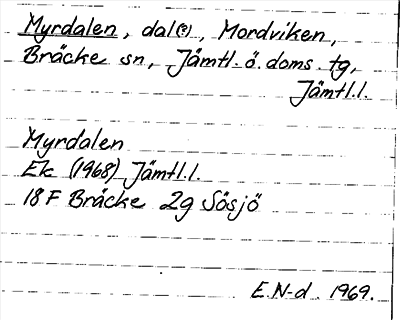 Myrdalen, dal(?), Mordviken,
Bräcke sn, Jämtl. ö. doms. tg,
Jämtl.l.
Myrdalen
Ek (1968) Jämtl.l.
18 F Bräcke 2g Sösjö
E.N-d. 1969.